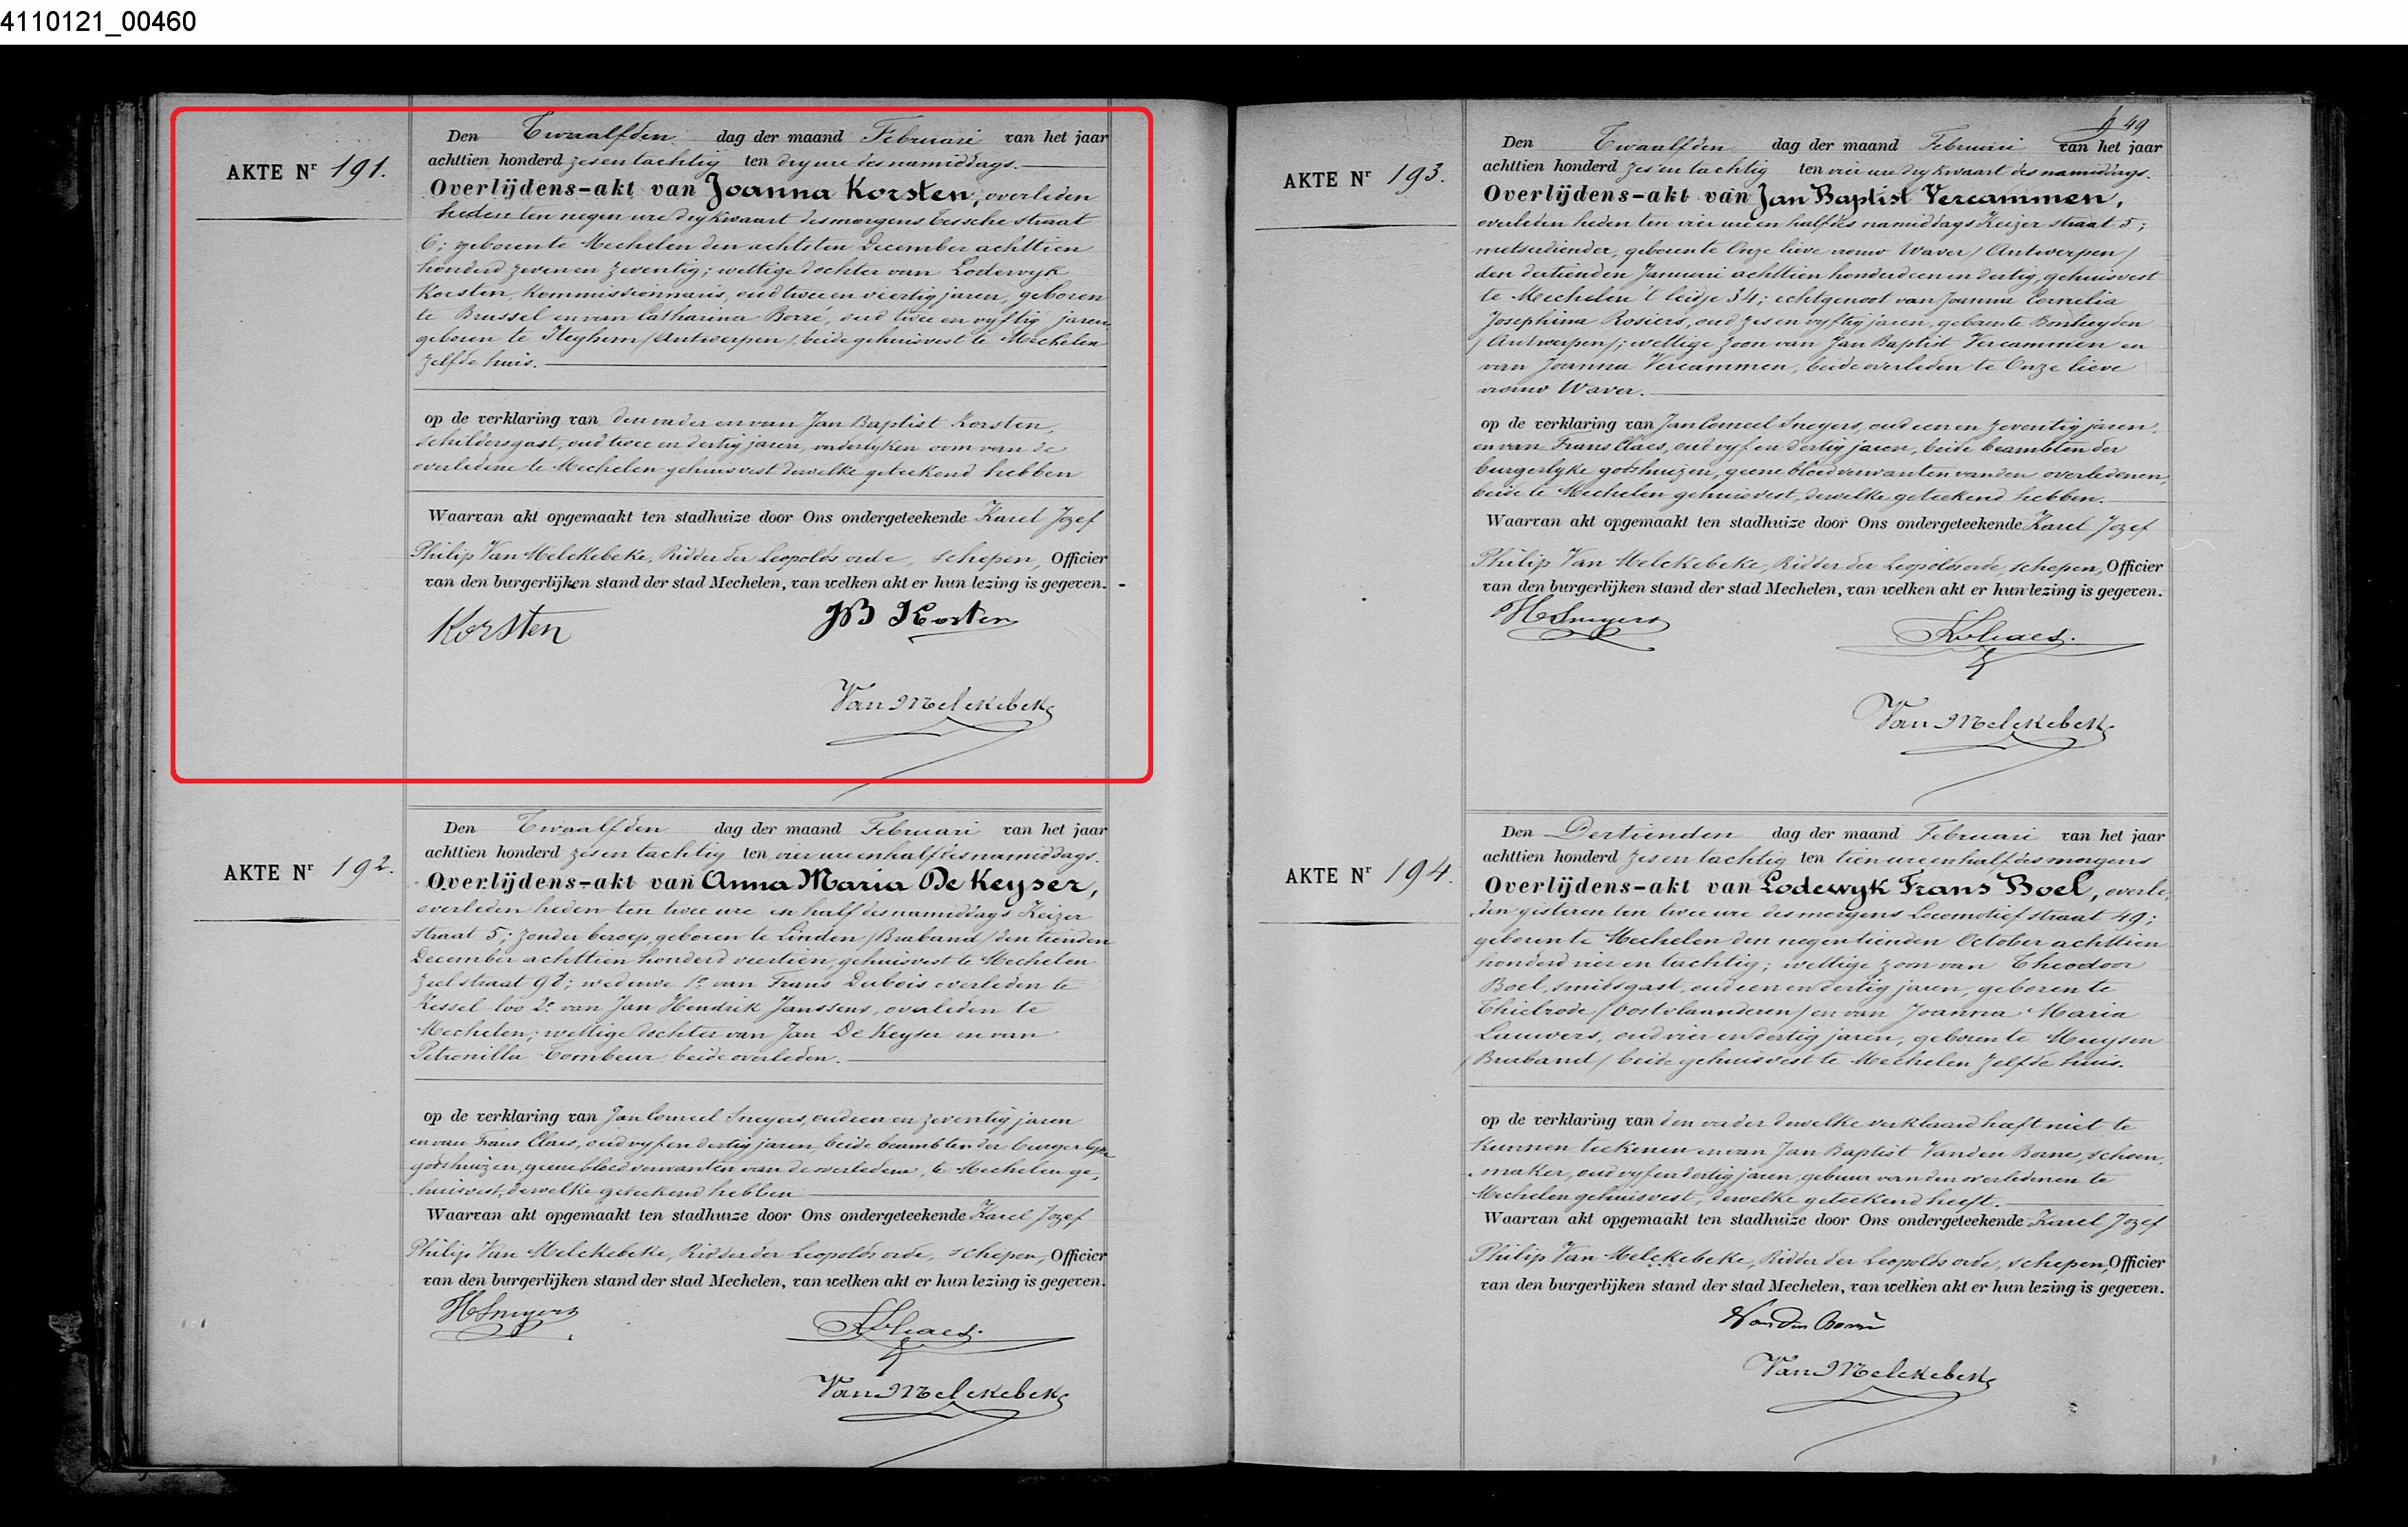 4110121_00460
AKTE Nr 191.
Den Twaalfden dag der maand Februari van het jaar
achttien honderd zes en tachtig ten dry ure des namiddags.
Overlijdens-akt van Joanna Korsten, overleden
heden ten negen ure dry kwaart des morgens Eessche straat
6; geboren te Mechelen den achtsten December achttien
honderd zeven en zeventig; wettige dochter van Lodewyk
Korsten, kommissionnaris, oud twee en viertig jaren, geboren
te Brussel en van Catharina Borré, oud twee en vyftig jaren
geboren te Iteghem /Antwerpen/, beide gehuisvest te Mechelen
zelfde huis.
op de verklaring van den vader en van Jan Baptist Korsten,
schildersgast, oud twee en dertig jaren, vaderlyken oom van de
overledene te Mechelen gehuisvest dewelke geteekend hebben
Waarvan akt opgemaakt ten stadhuize door Ons ondergeteekende Karel Jozef
Philip Van Melckebeke, Ridder der Leopolds orde, schepen, Officier
van den burgerlijken stand der stad Mechelen, van welken akt er hun lezing is gegeven.
Korsten JB Korsten
Van Melckebeke
AKTE Nr 192.
Den Twaalfden dag der maand Februari van het jaar
achttien honderd zes en tachtig ten vier ure en half des namiddags.
Overlijdens-akt van Anna Maria De Keyser,
overleden heden ten twee ure en half des namiddags Keizer
straat 5; zonder beroep, geboren te Linden /Braband/ den tienden
December achttien honderd veertien, gehuisvest te Mechelen
Zeelstraat 92; weduwe 1e van Frans Dubois overleden te
Kessel loo 2e van Jan Hendrik Janssens, overleden te
Mechelen; wettige dochter van Jan De Keyser en van
Petronilla Combeur beide overleden.
op de verklaring van Jan Corneel Sneyers, oud een en zeventig jaren
en van Frans Claes, oud vyf en dertig jaren, beide beambten der burgerlyke
godshuizen, geene bloedverwanten van de overledene, te Mechelen ge-
huisvest, dewelke geteekend hebben
Waarvan akt opgemaakt ten stadhuize door Ons ondergeteekende Karel Jozef
Philip Van Melckebeke, Ridder der Leopolds orde, schepen, Officier
van den burgerlijken stand der stad Mechelen, van welken akt er hun lezing is gegeven.
Sneyers Claes.
Van Melckebeke
49
AKTE Nr 193.
Den Twaalfden dag der maand Februari van het jaar
achttien honderd zes en tachtig ten vier ure dry kwaart des namiddags.
Overlijdens-akt van Jan Baptist Vercammen,
overleden heden ten vier ure en half des namiddags Keizer straat 5;
metserdiender, geboren te Onze lieve vrouw Waver /Antwerpen/
den dertienden Januari achttien honderd een en dertig, gehuisvest
te Mechelen 't leidje 34; echtgenoot van Joanna Cornelia
Josephina Rosiers, oud zes en vyftig jaren, geboren te Bonheyden
/Antwerpen/; wettige zoon van Jan Baptist Vercammen en
van Joanna Vercammen, beide overleden te Onze lieve
vrouw Waver.
op de verklaring van Jan Corneel Sneyers, oud een en zeventig jaren,
en van Frans Claes, oud vyf en dertig jaren, beide beambten der
burgerlyke godshuizen, geene bloedverwanten van den overledenen,
beide te Mechelen gehuisvest, dewelke geteekend hebben.
Waarvan akt opgemaakt ten stadhuize door Ons ondergeteekende Karel Jozef
Philip Van Melckebeke, Ridder der Leopolds orde, schepen, Officier
van den burgerlijken stand der stad Mechelen, van welken akt er hun lezing is gegeven.
Sneyers Claes.
Van Melckebeke
AKTE Nr 194.
Den Dertienden dag der maand Februari van het jaar
achttien honderd zes en tachtig ten tien ure en half des morgens
Overlijdens-akt van Lodewyk Frans Boel, overle-
den gisteren ten twee ure des morgens Locomotief straat 49;
geboren te Mechelen den negentienden October achttien
honderd vier en tachtig; wettige zoon van Theodoor
Boel, smidsgast, oud een en dertig jaren, geboren te
Thielrode /Oostvlaanderen/ en van Joanna Maria
Lauwers, oud vier en dertig jaren, geboren te Muysen
/Braband/ beide gehuisvest te Mechelen zelfde huis.
op de verklaring van den vader dewelke verklaard heeft niet te
kunnen teekenen en van Jan Baptist Vanden Borne, schoen-
maker, oud vyf en dertig jaren, gebuur van den overledenen te
Mechelen gehuisvest, dewelke geteekend heeft.
Waarvan akt opgemaakt ten stadhuize door Ons ondergeteekende Karel Jozef
Philip Van Melckebeke, Ridder der Leopolds orde, schepen, Officier
van den burgerlijken stand der stad Mechelen, van welken akt er hun lezing is gegeven.
Vanden Borne
Van Melckebeke